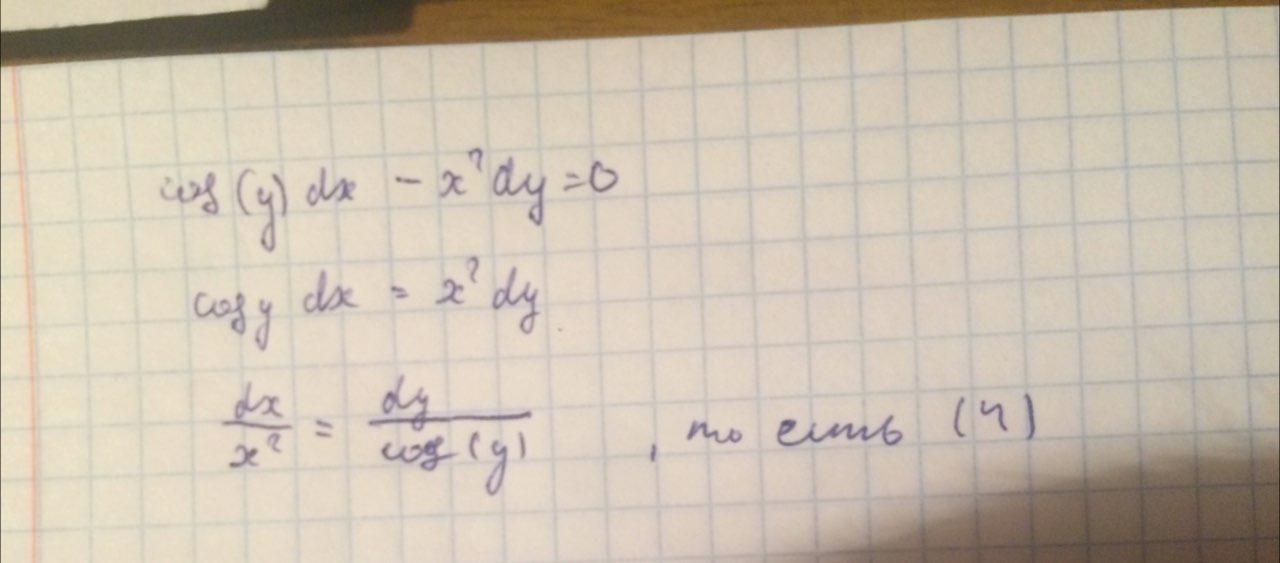 cos(y) dx - x² dy = 0
cos y dx = x² dy
dx/x² = dy/cos(y) , то есть (4)